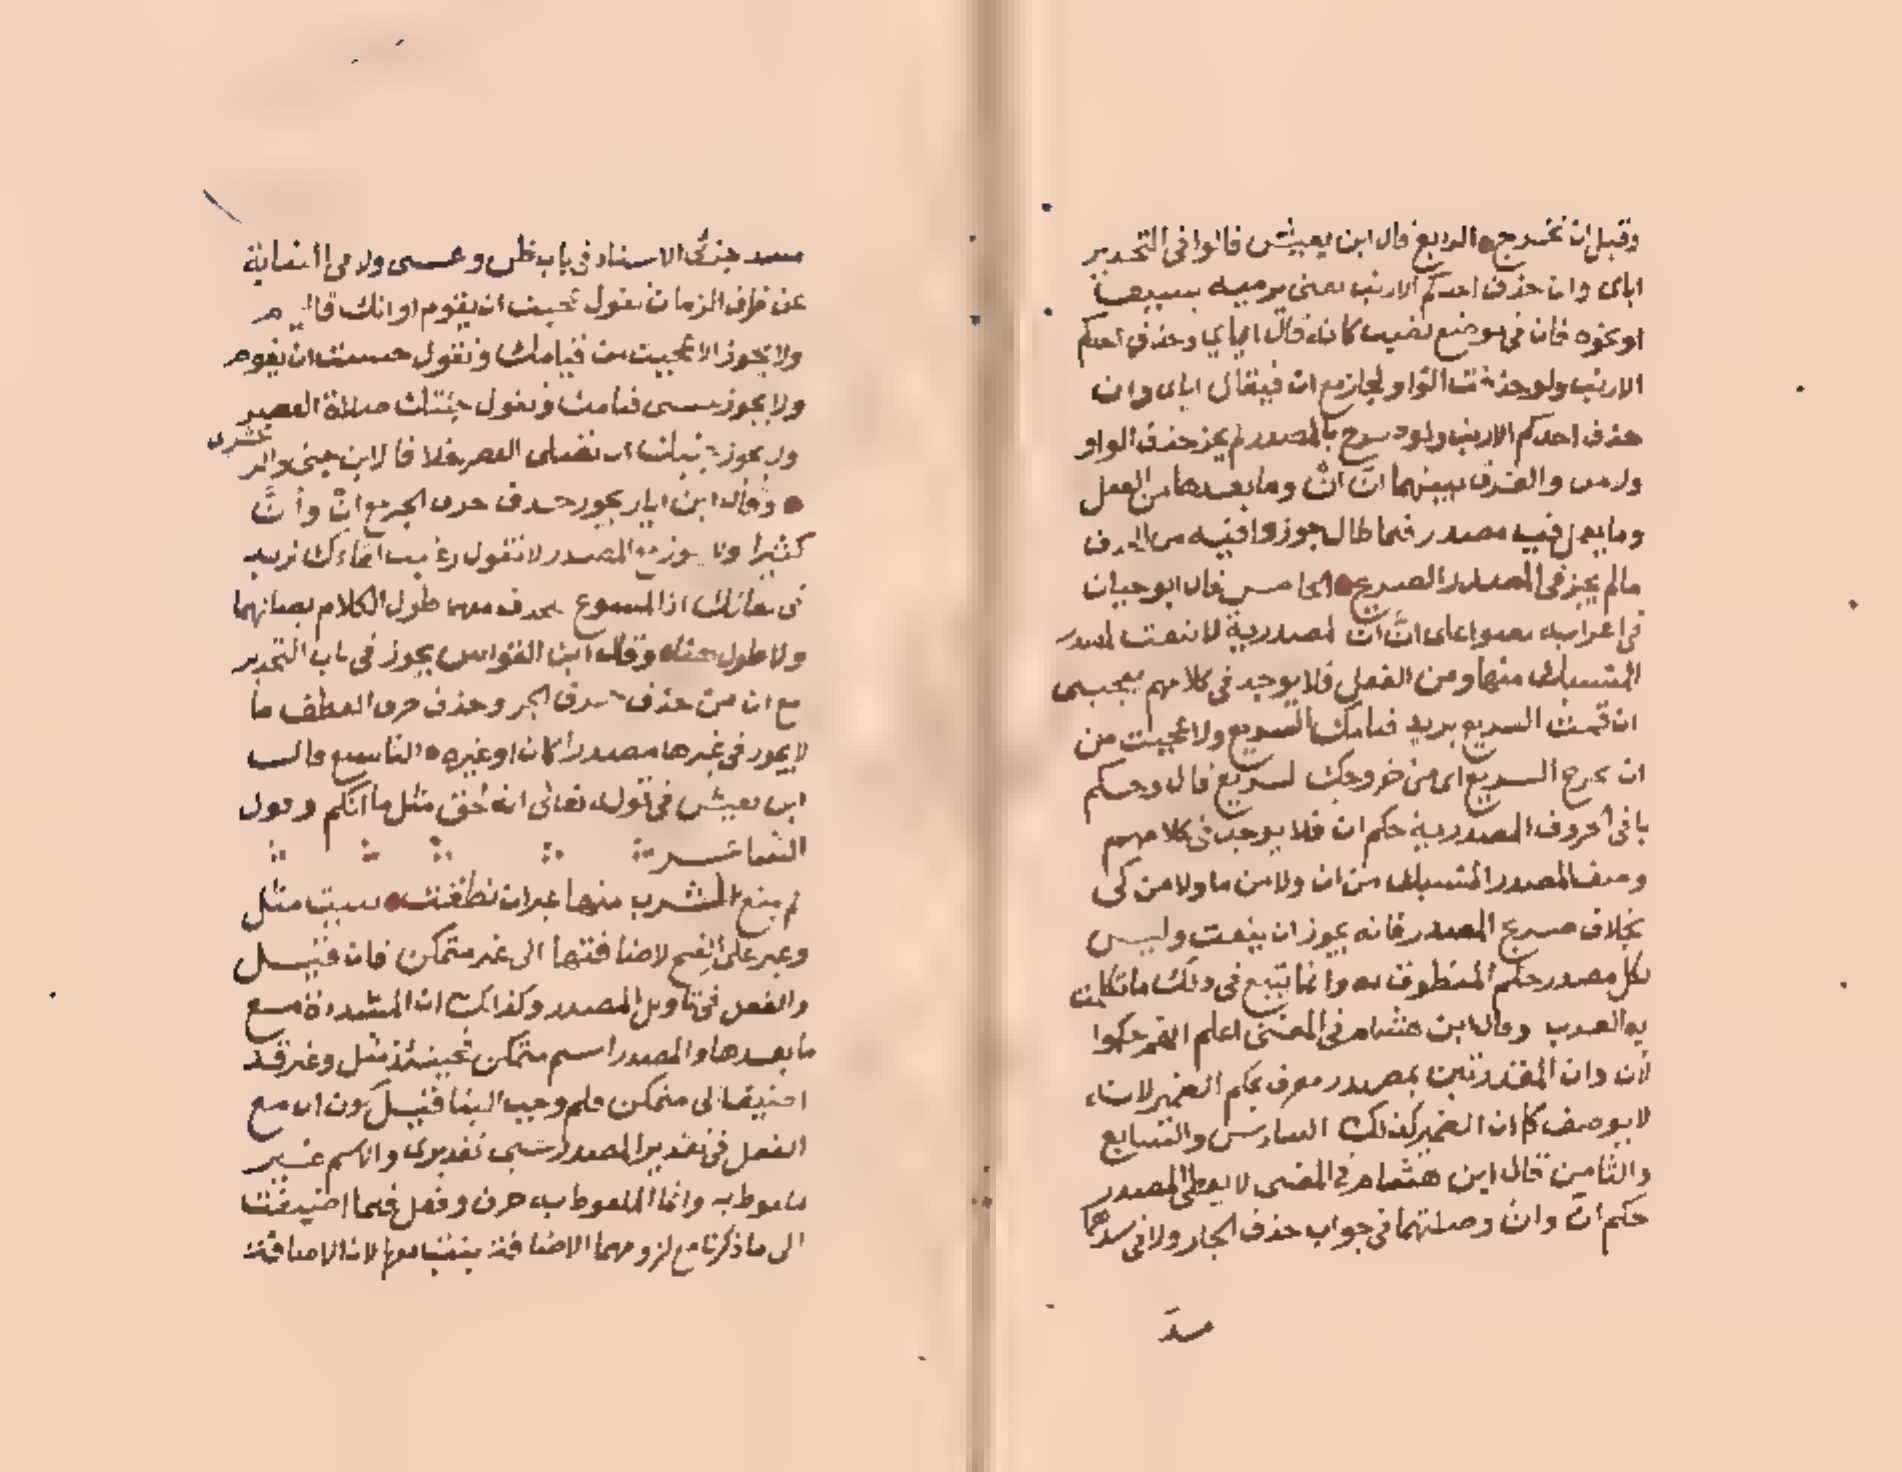 وقبل ان تخرج الرابع قال ابن يعيش قالوا فى التحذير
اياى وان حذف احدكم الارنب يعنى يرميه بسيف
او نحوه فان فى موضع نصب كانه قال اياى وحذف احدكم
الارنب ولو حذفت الواو لجاز مع ان فيقال اياى وان
حذف احدكم الارنب ولو صرح بالمصدر لم يجز حذف الواو
ولا من والفرق بينهما انّ انْ وما بعدها من الفعل
وما يعمل فيه مصدر فلما طال جوزوا فيه من الحذف
مالم يجز فى المصدر الصريح الخامس قال ابو حيان
فى اعرابه نصوا على انّ ان المصدرية لا ينعت المصدر
المنسبك منها ومن الفعل فلا يوجد فى كلامهم يعجبنى
ان قمت السريع يريد قيامك السريع ولا عجبت من
ان تخرج السريع اى من خروجك السريع قال وحكم
باقى الحروف المصدرية حكم ان فلا يوجد فى كلامهم
وصف المصدر المنسبك من ان ولا من ما ولا من كى
بخلاف صريح المصدر فانه يجوز ان ينعت وليس
لكل مصدر حكم المنطوق به وانما تتبع فى ذلك ما تكلمت
به العرب وقال ابن هشام فى المغنى اعلم انهم حكموا
لان وان المقدرتين بمصدر معرف بحكم الضمير لانه
لا يوصف كما ان الضمير كذلك السادس والسابع
والثامن قال ابن هشام فى المغنى لا يعطى المصدر
حكم ان وان وصلتهما فى جواب حذف الجار ولا فى سدهما
مسد
مسد جزئى الاسناد فى باب ظن وعسى ولا فى النيابة
عن ظرف الزمان تقول عجبت ان يقوم او انك قائم
ولا يجوز الا عجبت من قيامك وتقول حسبت ان تقوم
ولا يجوز عسى قيامك وتقول جئتك صلاة العصر
ولا يجوز جئتك ان تصلى العصر خلافا لابن جنى والز
مخشرى
وقال ابن اياز يجوز حذف حرف الجر مع انْ وأنَّ
كثيرا ولا يجوز مع المصدر لا تقول رغبت لقاءك تريد
فى لقائك اذ المسوغ للحذف معهما طول الكلام بصلتهما
ولا طول هنا وقال ابن القواس يجوز فى باب التحذير
مع ان من حذف حرف الجر وحذف حرف العطف ما
لا يجوز فى غيرها مصدرا كان او غيره التاسع قال
ابن يعيش فى قوله تعالى انه لحق مثل ما انكم وقول
الشاعر
لم يمنع الشرب منها غير ان نطقت بنيت مثل
وغير على الفتح لاضافتها الى غير متمكن فان قيل
والفعل فى تاويل المصدر وكذلك ان المشددة مع
ما بعدها والمصدر اسم متمكن فحينئذ مثل وغير قد
اضيفا الى متمكن فلم وجب البنا قيل كون ان مع
الفعل فى تقدير المصدر شى تقديرى والاسم غير
ملفوظ به وانما الملفوظ به حرف وفعل فلما اضيفت
الى ما ذكرنا مع لزومهما الاضافة بنيت معها لان الاضافة